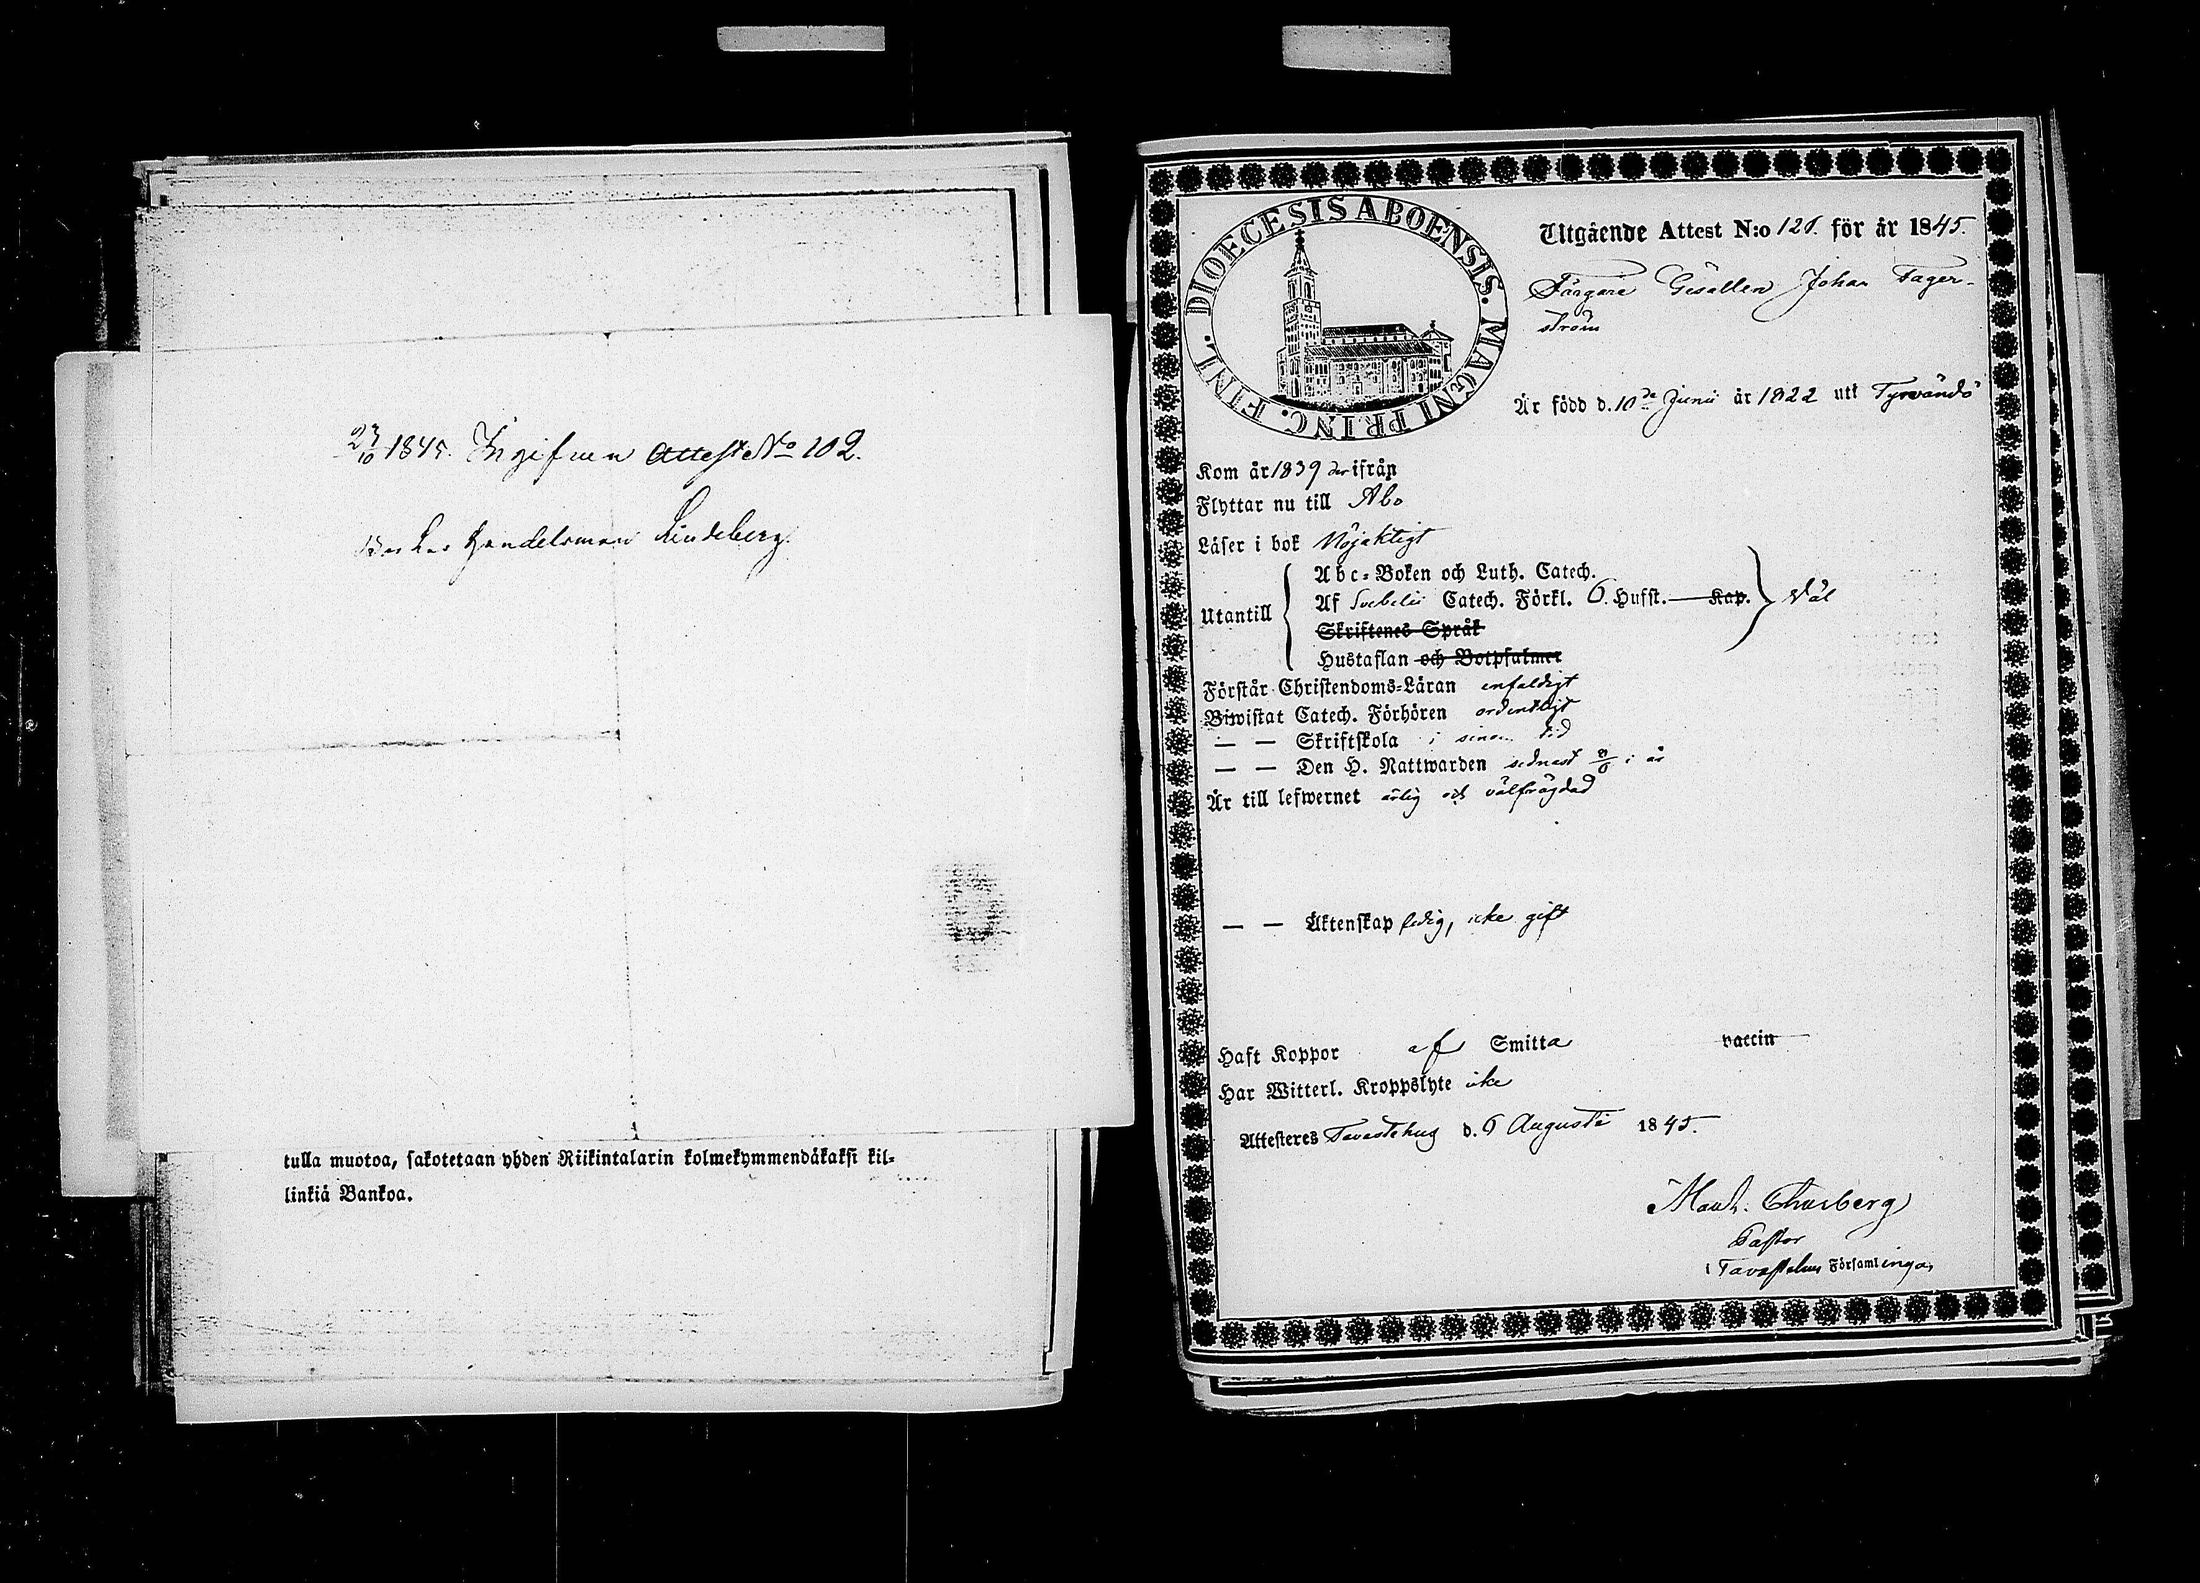 23/10 1845. Ingifven Attest No 102.
Handelsman Lindeberg.
tulla muotoa, sakotetaan yhden Riikintalarin kolmekymmendäkaksi kil-
linkiä Bankoa.
DIOECESIS ABOENSIS. MAGNI PRINC. FINL.
Utgående Attest N:o 126. för år 1845.
Färgare Gesällen Johan Fager-
ström
Är född d. 10de Junii år 1822 uti Tyrvändö
Kom år 1839 der ifrån
Flyttar nu till Åbo
Läser i bok Nöjaktigt
Utantill
Abc-Boken och Luth. Catech.
Af Svebelii Catech. Förkl. 6. Hufst. Kap.
Skriftenes Språk
Hustaflan och Botpsalmer
Väl
Förstår Christendoms-Läran enfaldigt
Biwistat Catech. Förhören ordentligt
— — Skriftskola i sinom tid
— — Den H. Nattwarden sednast 8/6 i år
Är till lefwernet ärlig och välfrägdad
— — Äktenskap ledig, icke gift
Haft Koppor af Smitta vaccin
Har Witterl. Kroppslyte icke
Attesteres Tavastehus d. 6 Augusti 1845.
Thurberg
Pastor
i Tavastehus Församlingar